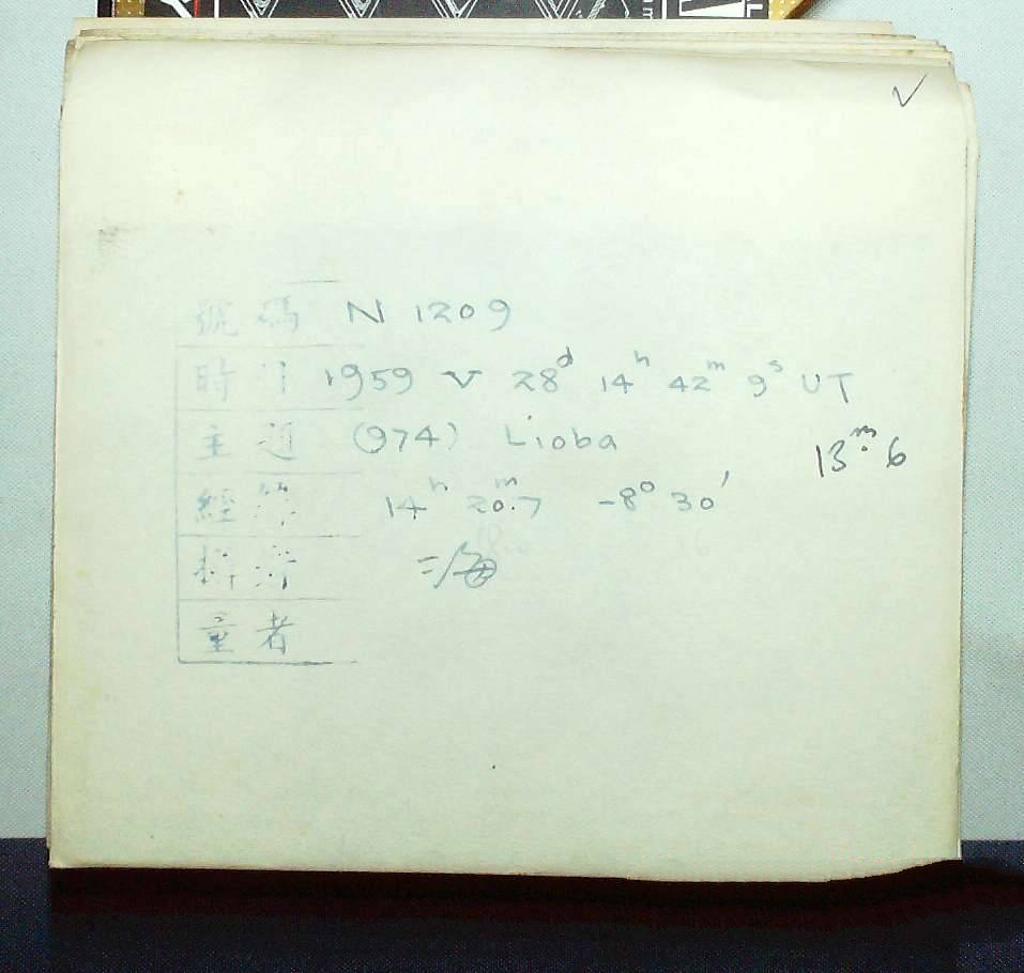 號碼 N 1209
時 1959 V 28d 14h 42m 9s UT
主題 (974) Lioba
13m.6
經緯 14h 20m.7 -8° 30'
海
量者